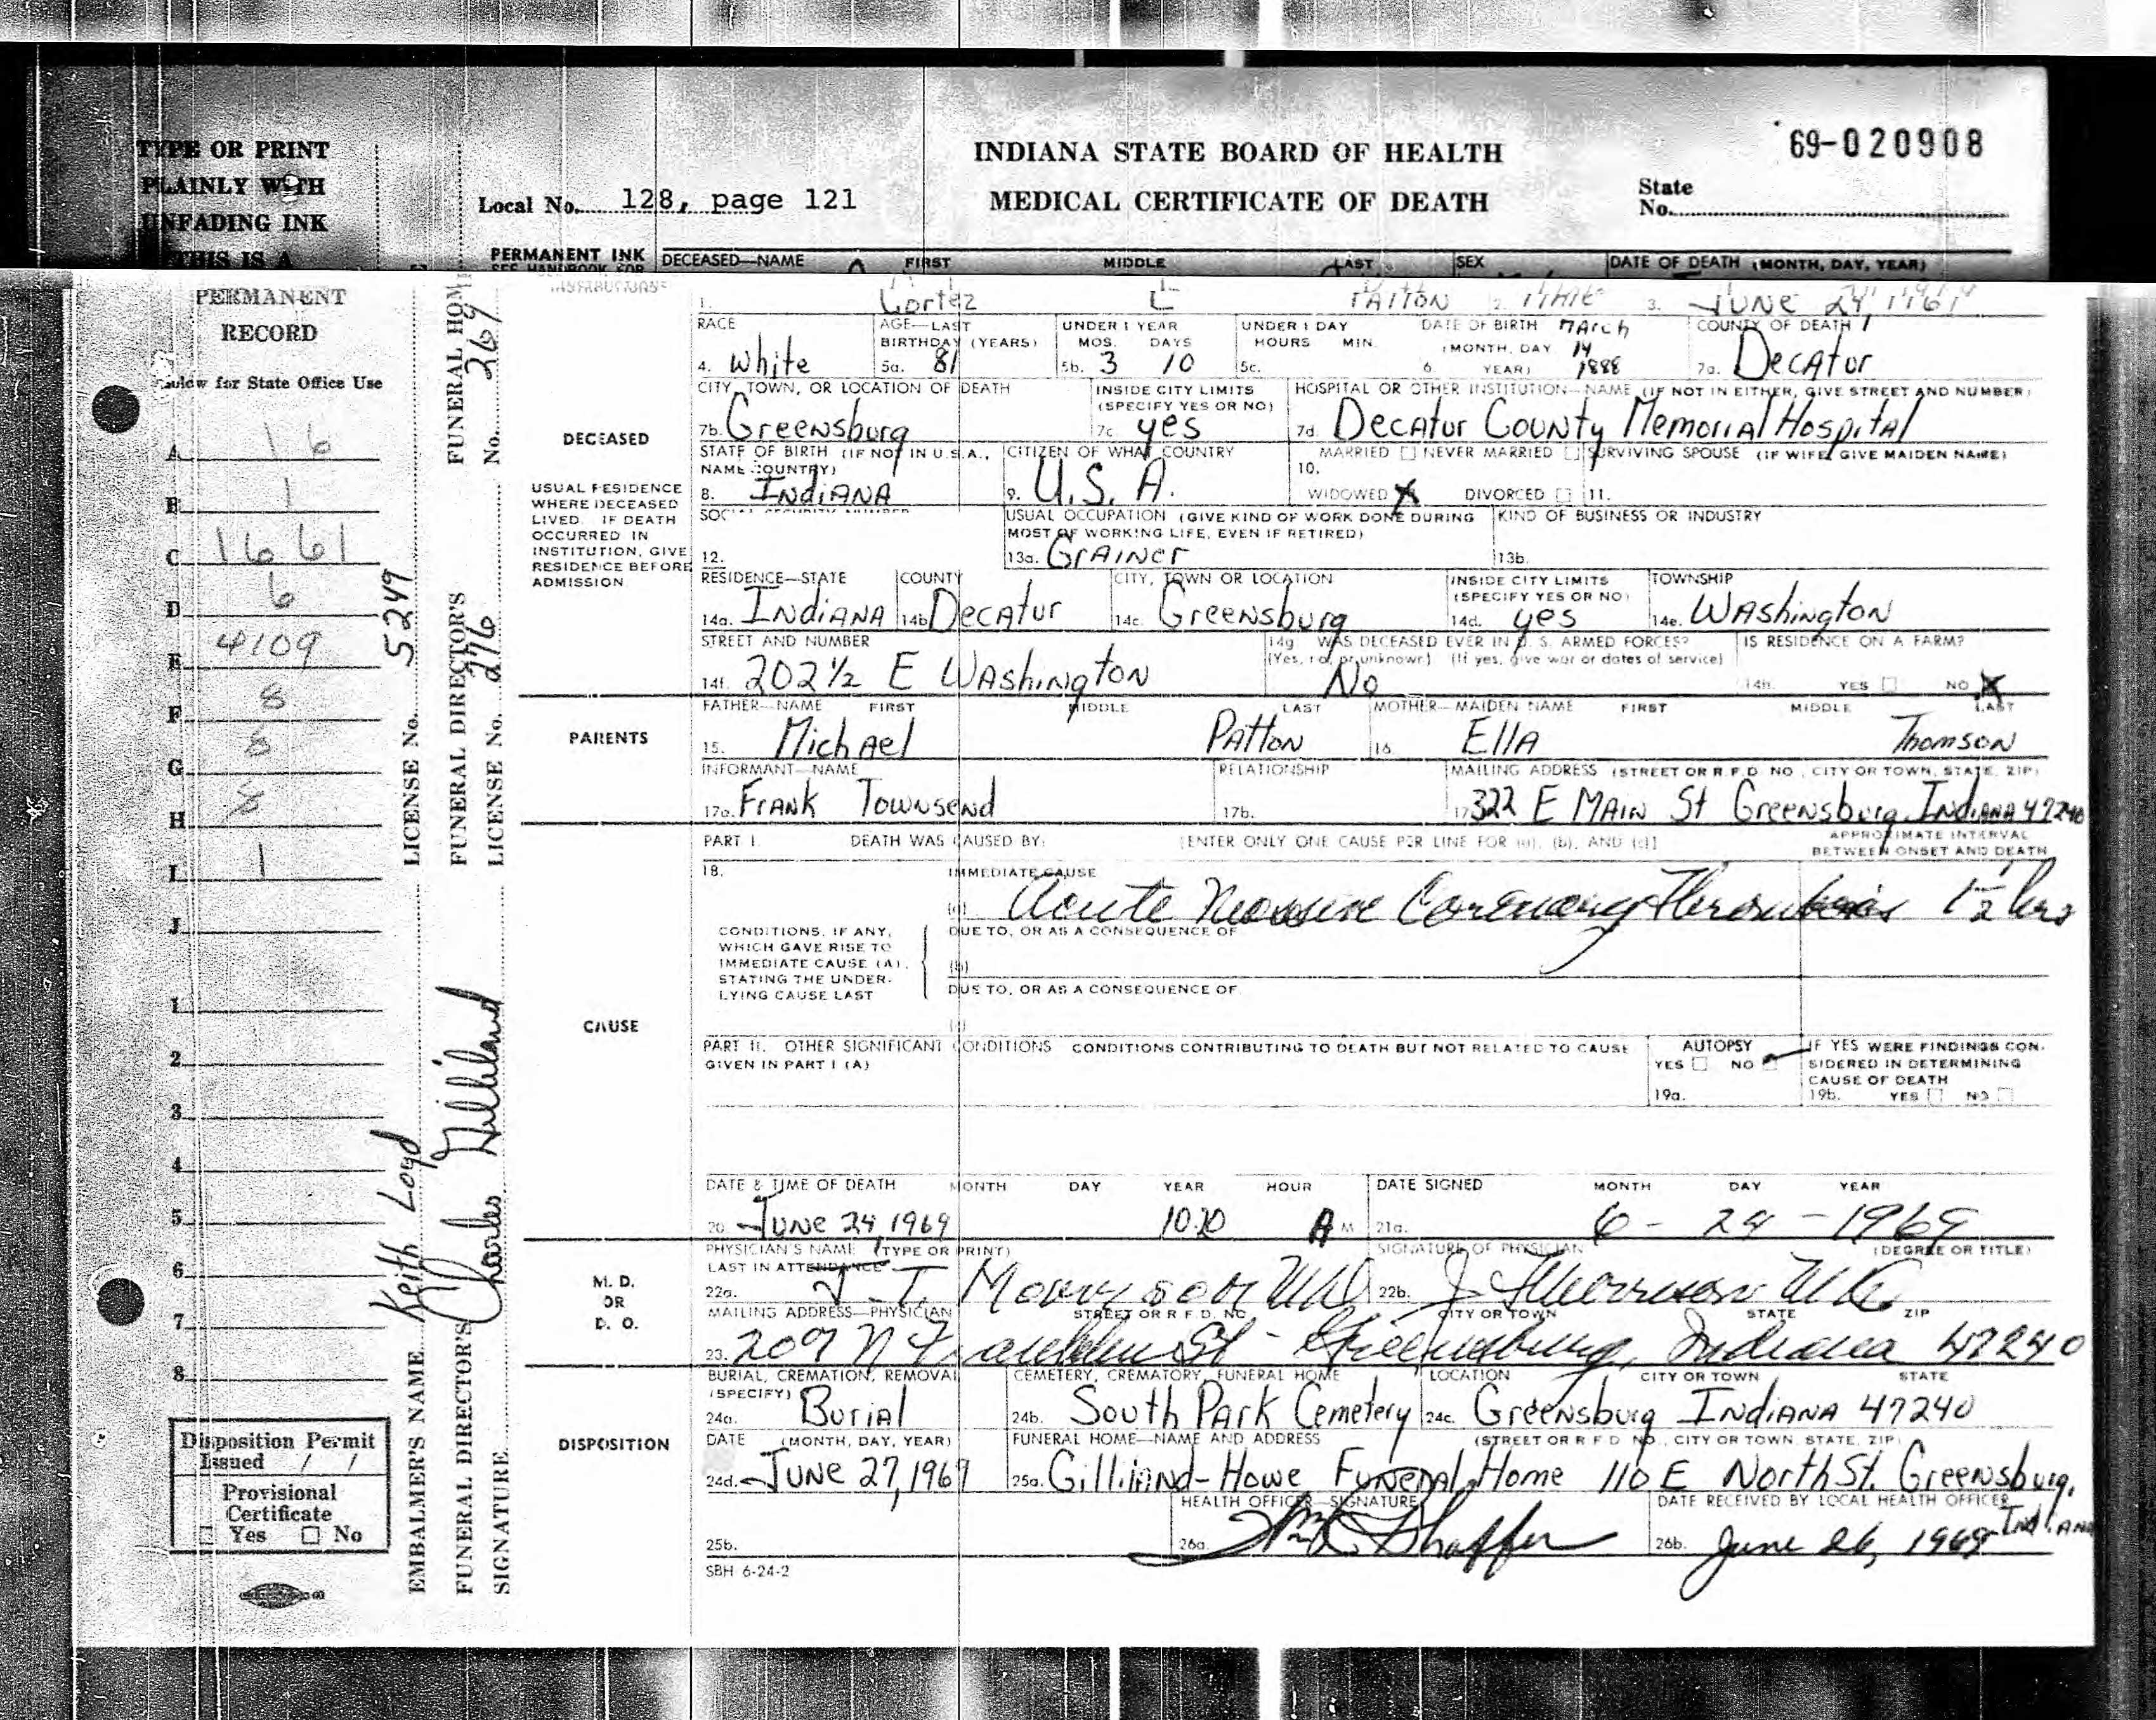 TYPE OR PRINT
PLAINLY WITH
UNFADING INK
THIS IS A
PERMANENT
RECORD
Below for State Office Use
A. 16
B. 1
C. 1661
D. 6
E. 4109
F. 8
G. 8
H. 8
L. 1
J.
1.
2.
3.
4.
5.
6.
7.
8.
Disposition Permit
Issued / /
Provisional
Certificate
☐ Yes ☐ No
EMBALMER'S NAME Keith Loyd LICENSE No. 5249
FUNERAL DIRECTOR'S SIGNATURE Charles Gilliland
FUNERAL DIRECTOR'S LICENSE No. 276
FUNERAL HOME No. 269
Local No. 128, page 121
INDIANA STATE BOARD OF HEALTH
MEDICAL CERTIFICATE OF DEATH
69-020908
State
No.
PERMANENT INK
SEE HANDBOOK FOR
INSTRUCTIONS
DECEASED—NAME FIRST MIDDLE LAST SEX DATE OF DEATH (MONTH, DAY, YEAR)
1. Cortez L PATTON 2. MALE 3. JUNE 24, 1969
RACE AGE—LAST BIRTHDAY (YEARS) UNDER 1 YEAR MOS. DAYS UNDER 1 DAY HOURS MIN. DATE OF BIRTH (MONTH, DAY, YEAR) COUNTY OF DEATH
4. White 5a. 81 5b. 3 10 5c. 6. MArch 14 1888 7a. DecAtur
CITY, TOWN, OR LOCATION OF DEATH INSIDE CITY LIMITS (SPECIFY YES OR NO) HOSPITAL OR OTHER INSTITUTION—NAME (IF NOT IN EITHER, GIVE STREET AND NUMBER)
DECEASED
7b. Greensburg 7c. yes 7d. DecAtur County Memorial Hospital
STATE OF BIRTH (IF NOT IN U.S.A., NAME COUNTRY) CITIZEN OF WHAT COUNTRY MARRIED ☐ NEVER MARRIED ☐ SURVIVING SPOUSE (IF WIFE, GIVE MAIDEN NAME)
8. INdiANA 9. U.S.A. 10. WIDOWED X DIVORCED ☐ 11.
USUAL RESIDENCE
WHERE DECEASED
LIVED. IF DEATH
OCCURRED IN
INSTITUTION, GIVE
RESIDENCE BEFORE
ADMISSION
SOCIAL SECURITY NUMBER USUAL OCCUPATION (GIVE KIND OF WORK DONE DURING MOST OF WORKING LIFE, EVEN IF RETIRED) KIND OF BUSINESS OR INDUSTRY
12. 13a. GrAiner 13b.
RESIDENCE—STATE COUNTY CITY, TOWN OR LOCATION INSIDE CITY LIMITS (SPECIFY YES OR NO) TOWNSHIP
14a. INdiANA 14b. DecAtur 14c. Greensburg 14d. yes 14e. WAshington
STREET AND NUMBER 14g. WAS DECEASED EVER IN U. S. ARMED FORCES? (Yes, no, or unknown) (If yes, give war or dates of service) IS RESIDENCE ON A FARM?
14f. 202½ E WAshington No 14h. YES ☐ NO X
PARENTS
FATHER—NAME FIRST MIDDLE LAST MOTHER—MAIDEN NAME FIRST MIDDLE LAST
15. MichAel PAtton 16. EllA Thomson
INFORMANT—NAME RELATIONSHIP MAILING ADDRESS (STREET OR R.F.D. NO., CITY OR TOWN, STATE, ZIP)
17a. FrANK Townsend 17b. 17 322 E MAIN St Greensburg, INdiANA 47240
PART I. DEATH WAS CAUSED BY: [ENTER ONLY ONE CAUSE PER LINE FOR (a), (b), AND (c)] APPROXIMATE INTERVAL BETWEEN ONSET AND DEATH
18. IMMEDIATE CAUSE
(a) Acute Massive Coronary Thrombosis 1½ hrs
CONDITIONS, IF ANY,
WHICH GAVE RISE TO
IMMEDIATE CAUSE (A),
STATING THE UNDER-
LYING CAUSE LAST
DUE TO, OR AS A CONSEQUENCE OF
(b)
DUE TO, OR AS A CONSEQUENCE OF
(c)
CAUSE
PART II. OTHER SIGNIFICANT CONDITIONS CONDITIONS CONTRIBUTING TO DEATH BUT NOT RELATED TO CAUSE GIVEN IN PART I (A)
AUTOPSY YES ☐ NO ☑ 19a.
IF YES WERE FINDINGS CONSIDERED IN DETERMINING CAUSE OF DEATH 19b. YES ☐ NO ☐
DATE & TIME OF DEATH MONTH DAY YEAR HOUR DATE SIGNED MONTH DAY YEAR
20. JUNe 24, 1969 10:20 A M 21a. 6 - 24 - 1969
PHYSICIAN'S NAME (TYPE OR PRINT) LAST IN ATTENDANCE SIGNATURE OF PHYSICIAN (DEGREE OR TITLE)
M. D.
OR
D. O.
22a. J. T. Morrison MD 22b. J T Morrison MD
MAILING ADDRESS—PHYSICIAN STREET OR R.F.D. NO. CITY OR TOWN STATE ZIP
23. 209 N Franklin St - Greensburg, Indiana 47240
DISPOSITION
BURIAL, CREMATION, REMOVAL (SPECIFY) CEMETERY, CREMATORY, FUNERAL HOME LOCATION CITY OR TOWN STATE
24a. BuriAl 24b. South PArk Cemetery 24c. Greensburg INdiANA 47240
DATE (MONTH, DAY, YEAR) FUNERAL HOME—NAME AND ADDRESS (STREET OR R.F.D. NO., CITY OR TOWN, STATE, ZIP)
24d. JUNe 27, 1969 25a. GilliLANd-Howe FUNerAl Home 110 E North St. Greensburg, INdiANA
HEALTH OFFICER—SIGNATURE DATE RECEIVED BY LOCAL HEALTH OFFICER
25b. 26a. Shaffer 26b. June 26, 1969
SBH 6-24-2